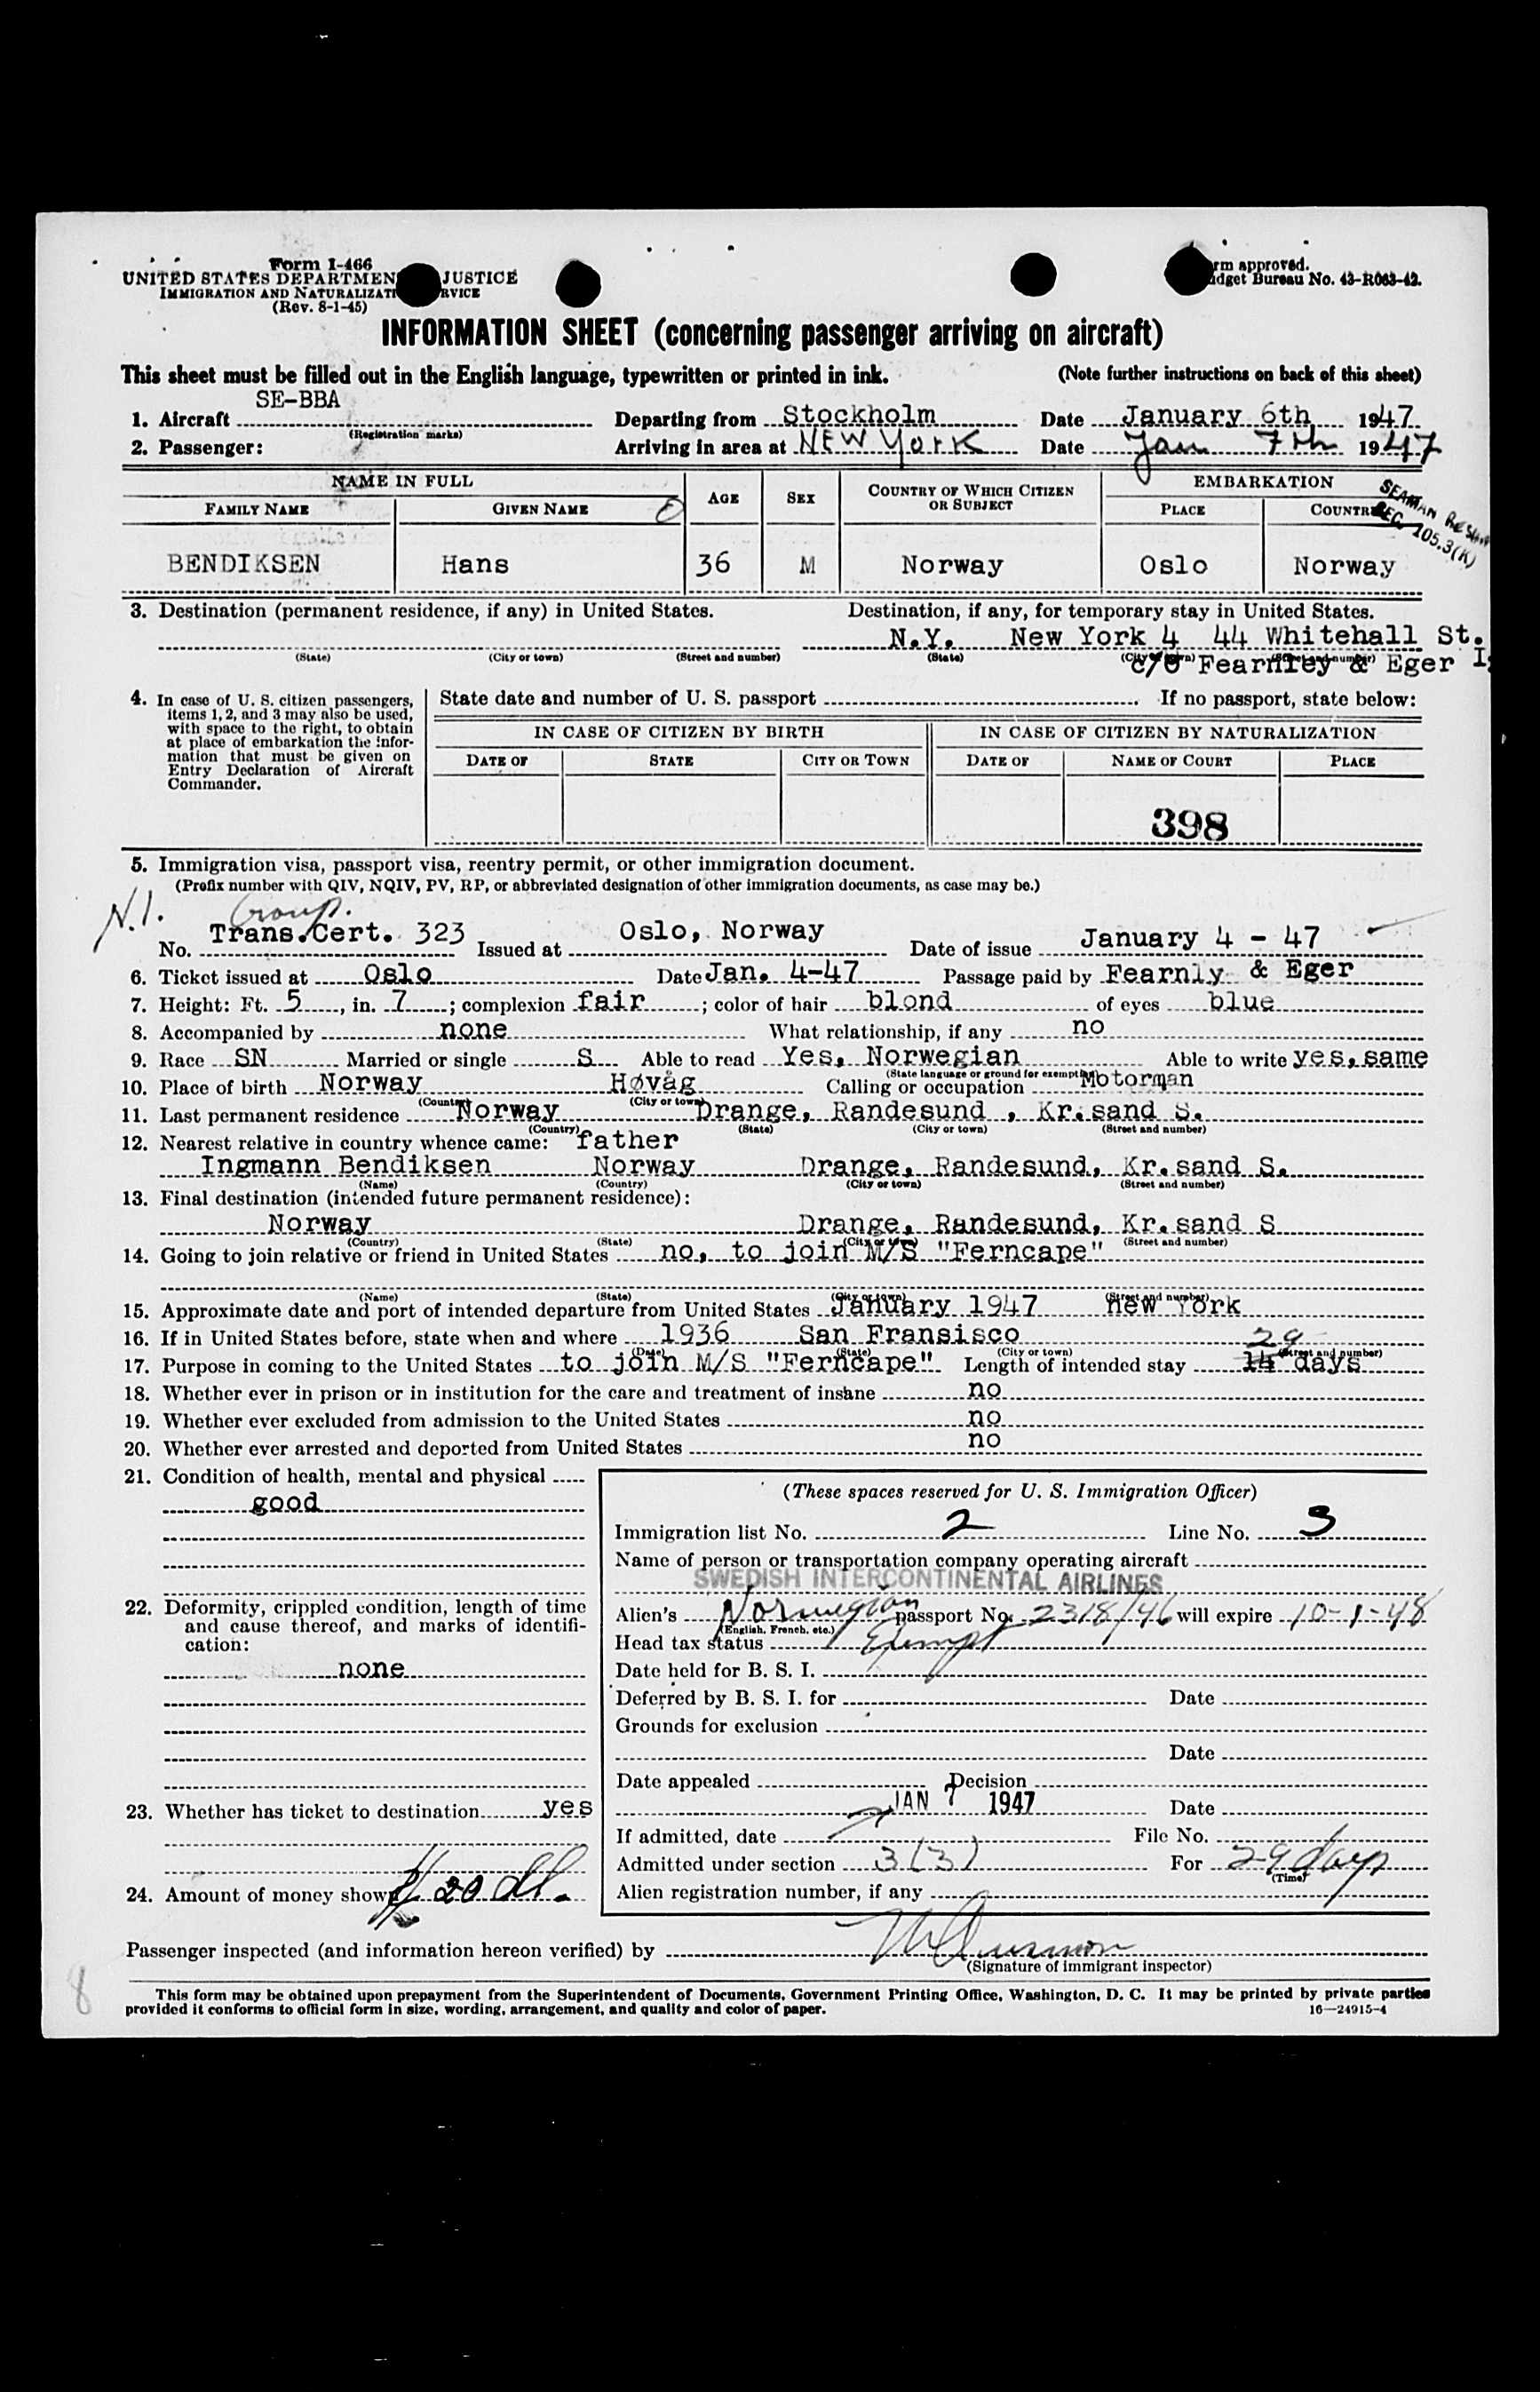 Form I-466
UNITED STATES DEPARTMEN JUSTICE
IMMIGRATION AND NATURALIZATI RVICE
(Rev. 8-1-45)
rm approved.
dget Bureau No. 43-R063-42.
INFORMATION SHEET (concerning passenger arriving on aircraft)
This sheet must be filled out in the English language, typewritten or printed in ink. (Note further instructions on back of this sheet)
1. Aircraft SE-BBA Departing from Stockholm Date January 6th 1947
(Registration marks)
2. Passenger: Arriving in area at NEW YORK Date Jan 7th 1947
NAME IN FULL AGE SEX COUNTRY OF WHICH CITIZEN OR SUBJECT EMBARKATION
FAMILY NAME GIVEN NAME PLACE COUNTR
SEAMAN
REG. 105.3(K)
BENDIKSEN Hans 36 M Norway Oslo Norway
3. Destination (permanent residence, if any) in United States. Destination, if any, for temporary stay in United States.
N.Y. New York 4 44 Whitehall St.
(State) (City or town) (Street and number) (State) (City or town) (Street and number)
c/o Fearnley & Eger
4. In case of U. S. citizen passengers, items 1, 2, and 3 may also be used, with space to the right, to obtain at place of embarkation the information that must be given on Entry Declaration of Aircraft Commander.
State date and number of U. S. passport If no passport, state below:
IN CASE OF CITIZEN BY BIRTH IN CASE OF CITIZEN BY NATURALIZATION
DATE OF STATE CITY OR TOWN DATE OF NAME OF COURT PLACE
398
5. Immigration visa, passport visa, reentry permit, or other immigration document.
(Prefix number with QIV, NQIV, PV, RP, or abbreviated designation of other immigration documents, as case may be.)
N.I. Group.
No. Trans.Cert. 323 Issued at Oslo, Norway Date of issue January 4 - 47
6. Ticket issued at Oslo Date Jan. 4-47 Passage paid by Fearnly & Eger
7. Height: Ft. 5, in. 7; complexion fair; color of hair blond of eyes blue
8. Accompanied by none What relationship, if any no
9. Race SN Married or single S Able to read Yes, Norwegian Able to write yes, same
(State language or ground for exemption)
10. Place of birth Norway Høvåg Calling or occupation Motorman
(Country) (City or town)
11. Last permanent residence Norway Drange, Randesund , Kr.sand S.
(Country) (State) (City or town) (Street and number)
12. Nearest relative in country whence came: father
Ingmann Bendiksen Norway Drange, Randesund, Kr.sand S.
(Name) (Country) (City or town) (Street and number)
13. Final destination (intended future permanent residence):
Norway Drange, Randesund, Kr.sand S
(Country) (State) (City or town) (Street and number)
14. Going to join relative or friend in United States no, to join M/S "Ferncape"
(Name) (State) (City or town) (Street and number)
15. Approximate date and port of intended departure from United States January 1947 New York
16. If in United States before, state when and where 1936 San Fransisco
(Date) (State) (City or town) (Street and number)
29
17. Purpose in coming to the United States to join M/S "Ferncape" Length of intended stay 14 days
18. Whether ever in prison or in institution for the care and treatment of insane no
19. Whether ever excluded from admission to the United States no
20. Whether ever arrested and deported from United States no
21. Condition of health, mental and physical
good
22. Deformity, crippled condition, length of time and cause thereof, and marks of identification:
none
23. Whether has ticket to destination yes
24. Amount of money shown 20
(These spaces reserved for U. S. Immigration Officer)
Immigration list No. 2 Line No. 3
Name of person or transportation company operating aircraft
SWEDISH INTERCONTINENTAL AIRLINES
Alien's Norwegian passport No. 2318/46 will expire 10-1-48
(English, French, etc.)
Head tax status Exempt
Date held for B. S. I.
Deferred by B. S. I. for Date
Grounds for exclusion
Date
Date appealed Decision
JAN 7 1947 Date
If admitted, date File No.
Admitted under section 3(3) For 29 days
(Time)
Alien registration number, if any
Passenger inspected (and information hereon verified) by
(Signature of immigrant inspector)
8
This form may be obtained upon prepayment from the Superintendent of Documents, Government Printing Office, Washington, D. C. It may be printed by private parties
provided it conforms to official form in size, wording, arrangement, and quality and color of paper. 16—24915-4